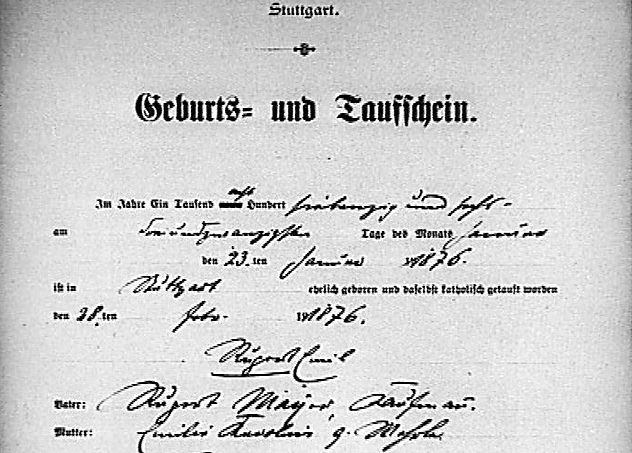 Stuttgart.
Geburts- und Taufschein.
Im Jahre Ein Tausend acht Hundert siebenzig und sechs -
am dreiundzwanzigsten Tage des Monats Januar
den 23.ten Januar 1876.
ist in Stuttgart ehelich geboren und daselbst katholisch getauft worden
den 28.ten Febr. 1876.
Rupert Emil
Vater: Rupert Mayer, Kaufmann.
Mutter: Emilie Karoline g. Wehrle